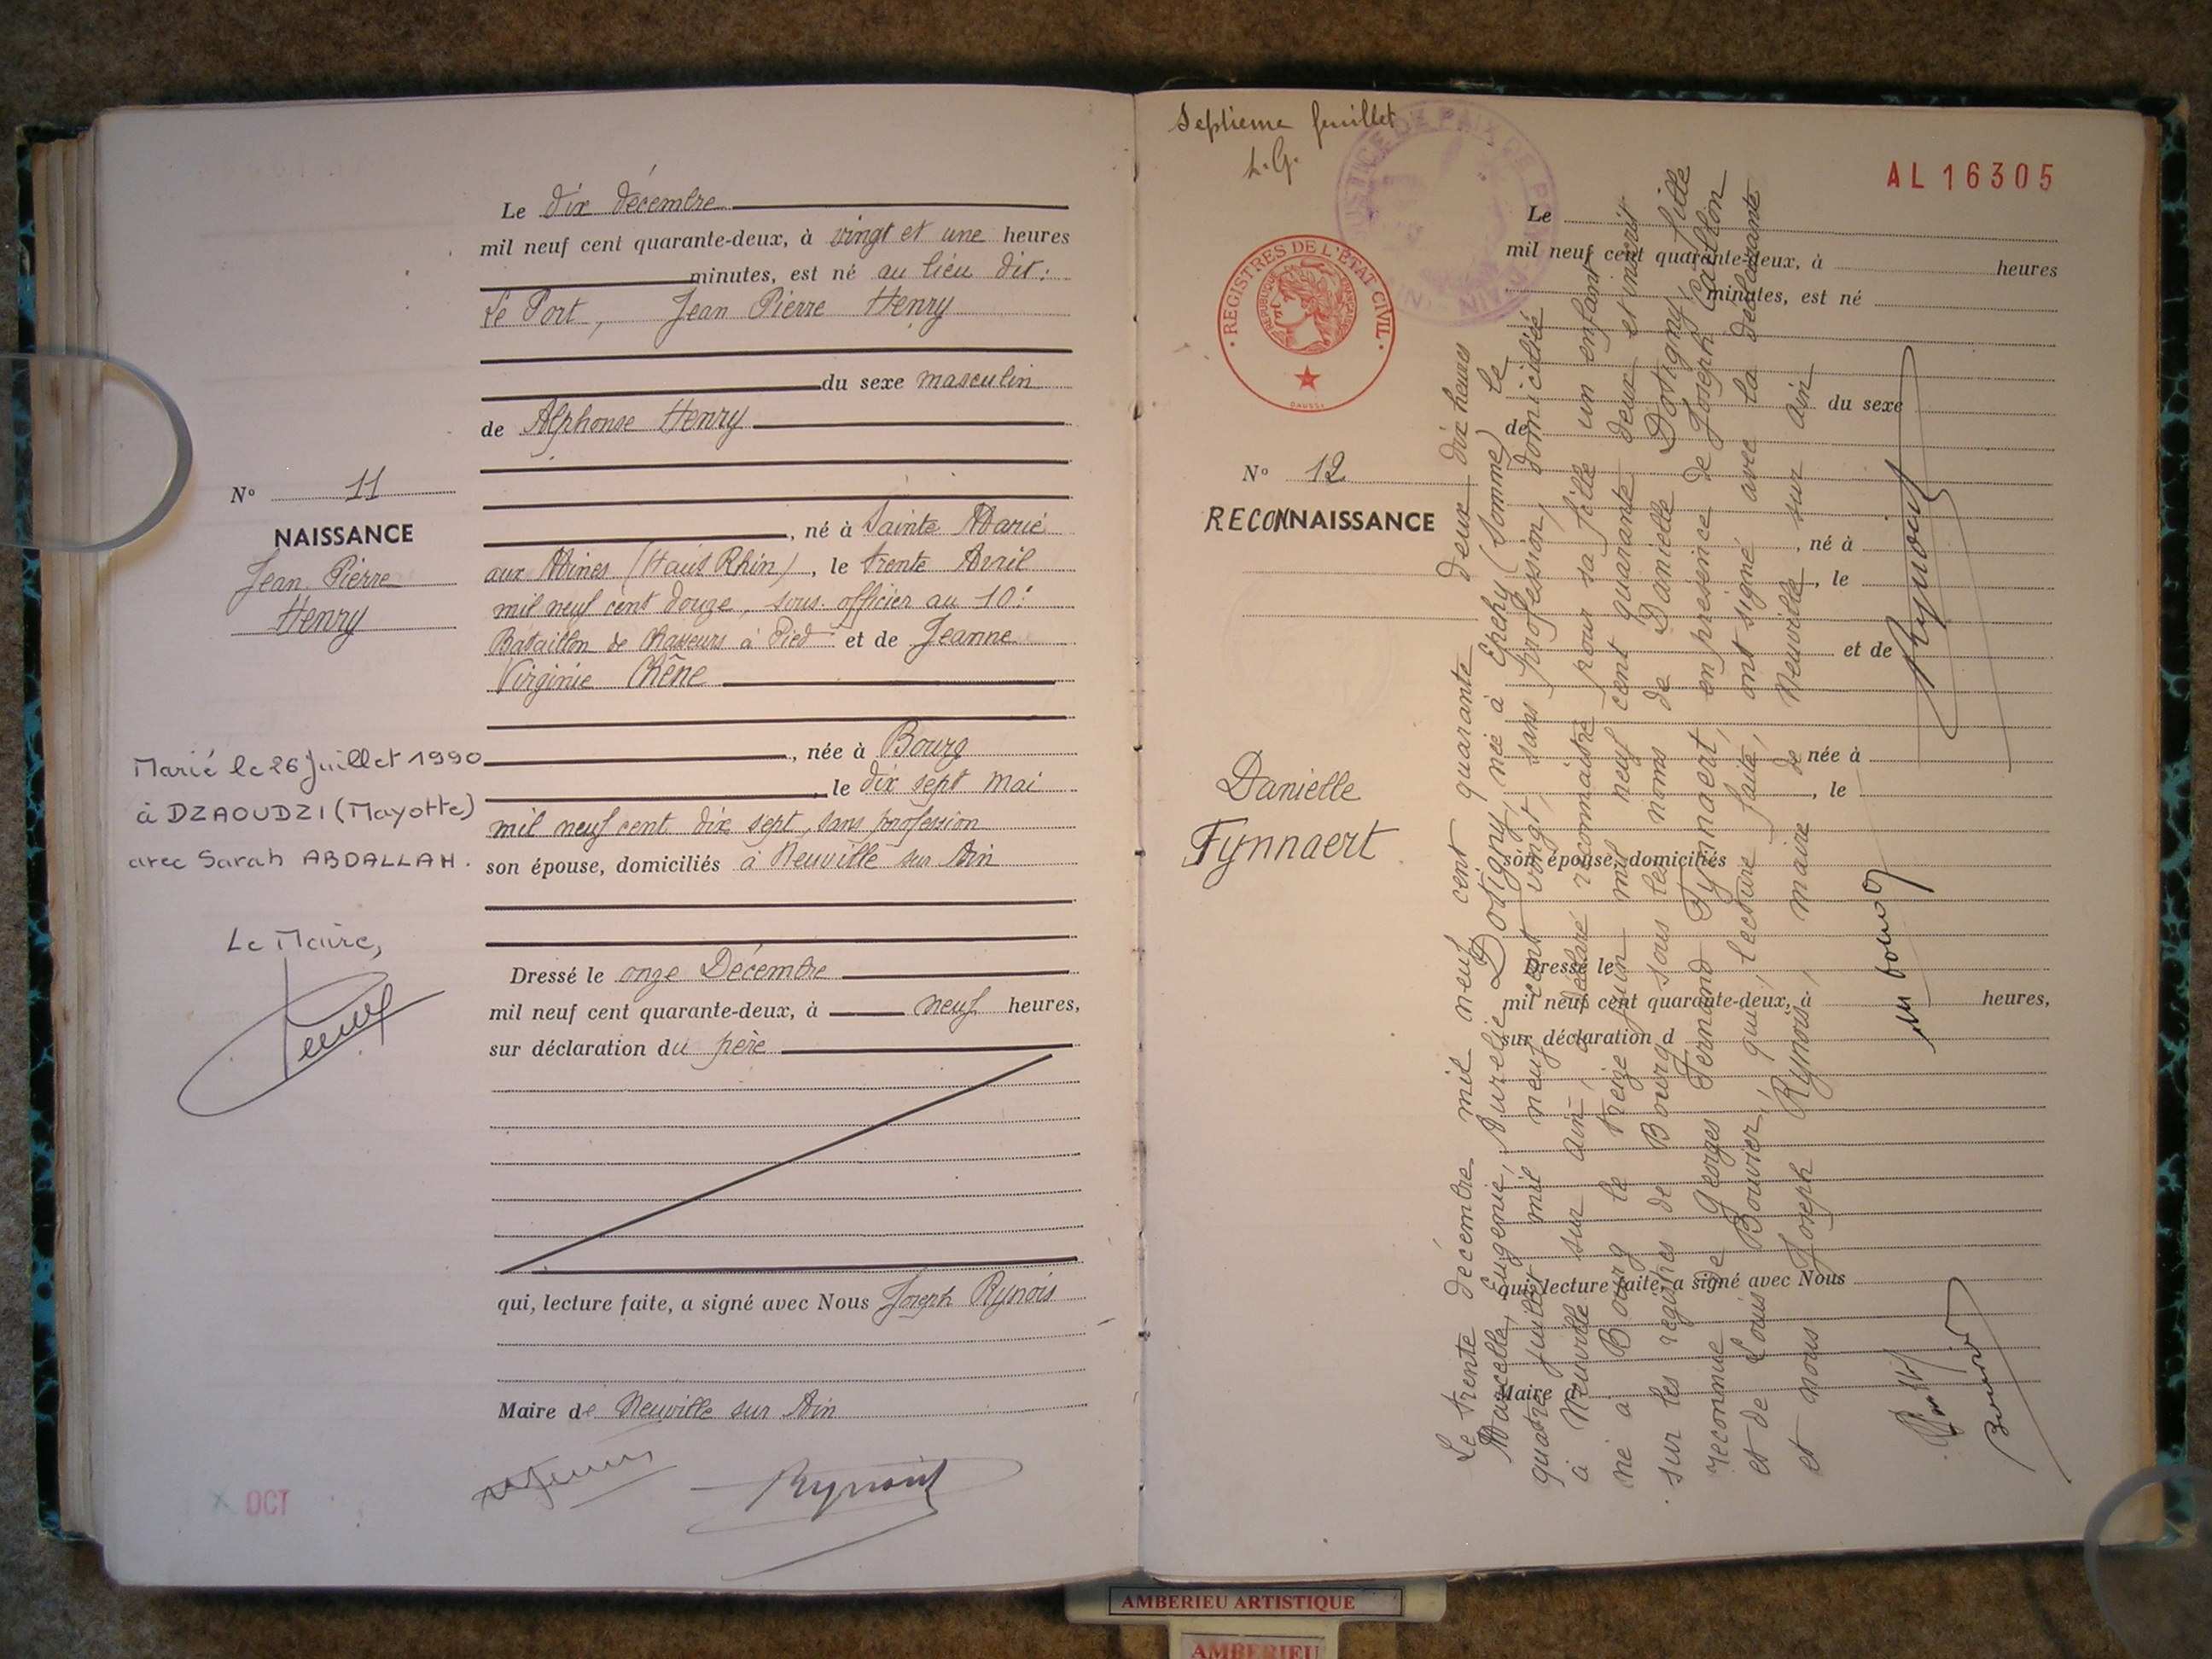 Le dix décembre
mil neuf cent quarante-deux, à vingt et une heures
minutes, est né au lieu dit:
Le Port, Jean Pierre Henry
du sexe masculin
de Alphonse Henry
, né à Sainte Marie
aux Mines (Haut Rhin), le trente Avril
mil neuf cent douze, sous-officier au 10e
Bataillon de Chasseurs à Pied et de Jeanne
Virginie Chêne
, née à Bourg
, le dix sept mai
mil neuf cent dix sept, sans profession
son épouse, domiciliés à Neuville sur Ain
Dressé le onze Décembre
mil neuf cent quarante-deux, à neuf heures,
sur déclaration du père
qui, lecture faite, a signé avec Nous Joseph Rynois
Maire de Neuville sur Ain
Rynois
N° 11
NAISSANCE
Jean Pierre
Henry
Marié le 26 Juillet 1990
à DZAOUDZI (Mayotte)
avec Sarah ABDALLAH.
Le Maire,
OCT
Septieme feuillet
L.G.
JUSTICE DE PAIX DE
AL 16305
REGISTRES DE L'ÉTAT CIVIL
RÉPUBLIQUE FRANÇAISE
N° 12
RECONNAISSANCE
Danielle
Fynnaert
Le
mil neuf cent quarante-deux, à heures
minutes, est né
du sexe
de
, né à
, le
et de
née à
, le
son épouse, domiciliés
Dressé le
mil neuf cent quarante-deux, à heures,
sur déclaration d
qui, lecture faite, a signé avec Nous
Maire d
Le trente décembre mil neuf cent quarante deux dix heures
Marcelle, Eugenie, Aurelie Dotigny, née à Epehy (Somme) le
quatre juillet mil neuf cent vingt, sans profession, domiciliée
à Neuville sur ain, a déclaré reconnaitre pour sa fille un enfant
né à Bourg le treize juin mil neuf cent quarante deux et inscrit
sur les registres de Bourg sous les noms de Danielle Dotigny, fille
reconnue de Georges Fernand Fynnaert, en présence de Joseph Caillon
et de Louis Bouvier, qui, lecture faite, ont signé avec la déclarante
et nous Joseph Rynois, maire de Neuville sur ain
Rynois
Bouvier
AMBERIEU ARTISTIQUE
AMBERIEU